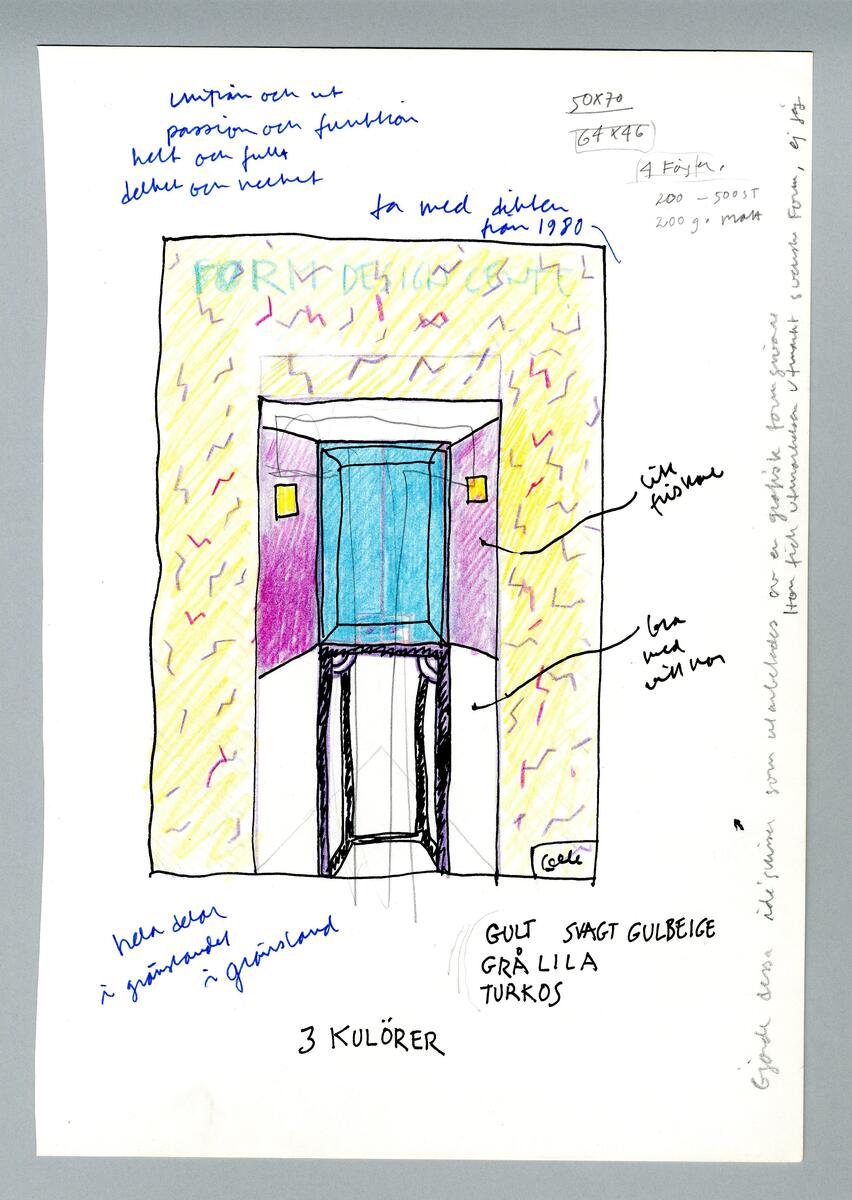 och ut
passion och funktion
helt och fullt
delhet och helhet
50X70
64X46
4 Färger.
200 – 500 ST
200 g. matt
ta med dikten
från 1980
FORM DESIGN CENTE
till
bra
med
Celle
hela delar
i gränslandet
i gränsland
GULT SVAGT GULBEIGE
GRÅ LILA
TURKOS
3 KULÖRER
Gjorde dessa idéskisser som utarbetades av en grafisk formgivare
Hon fick utmärkelsen Utmärkt svensk Form, ej jag